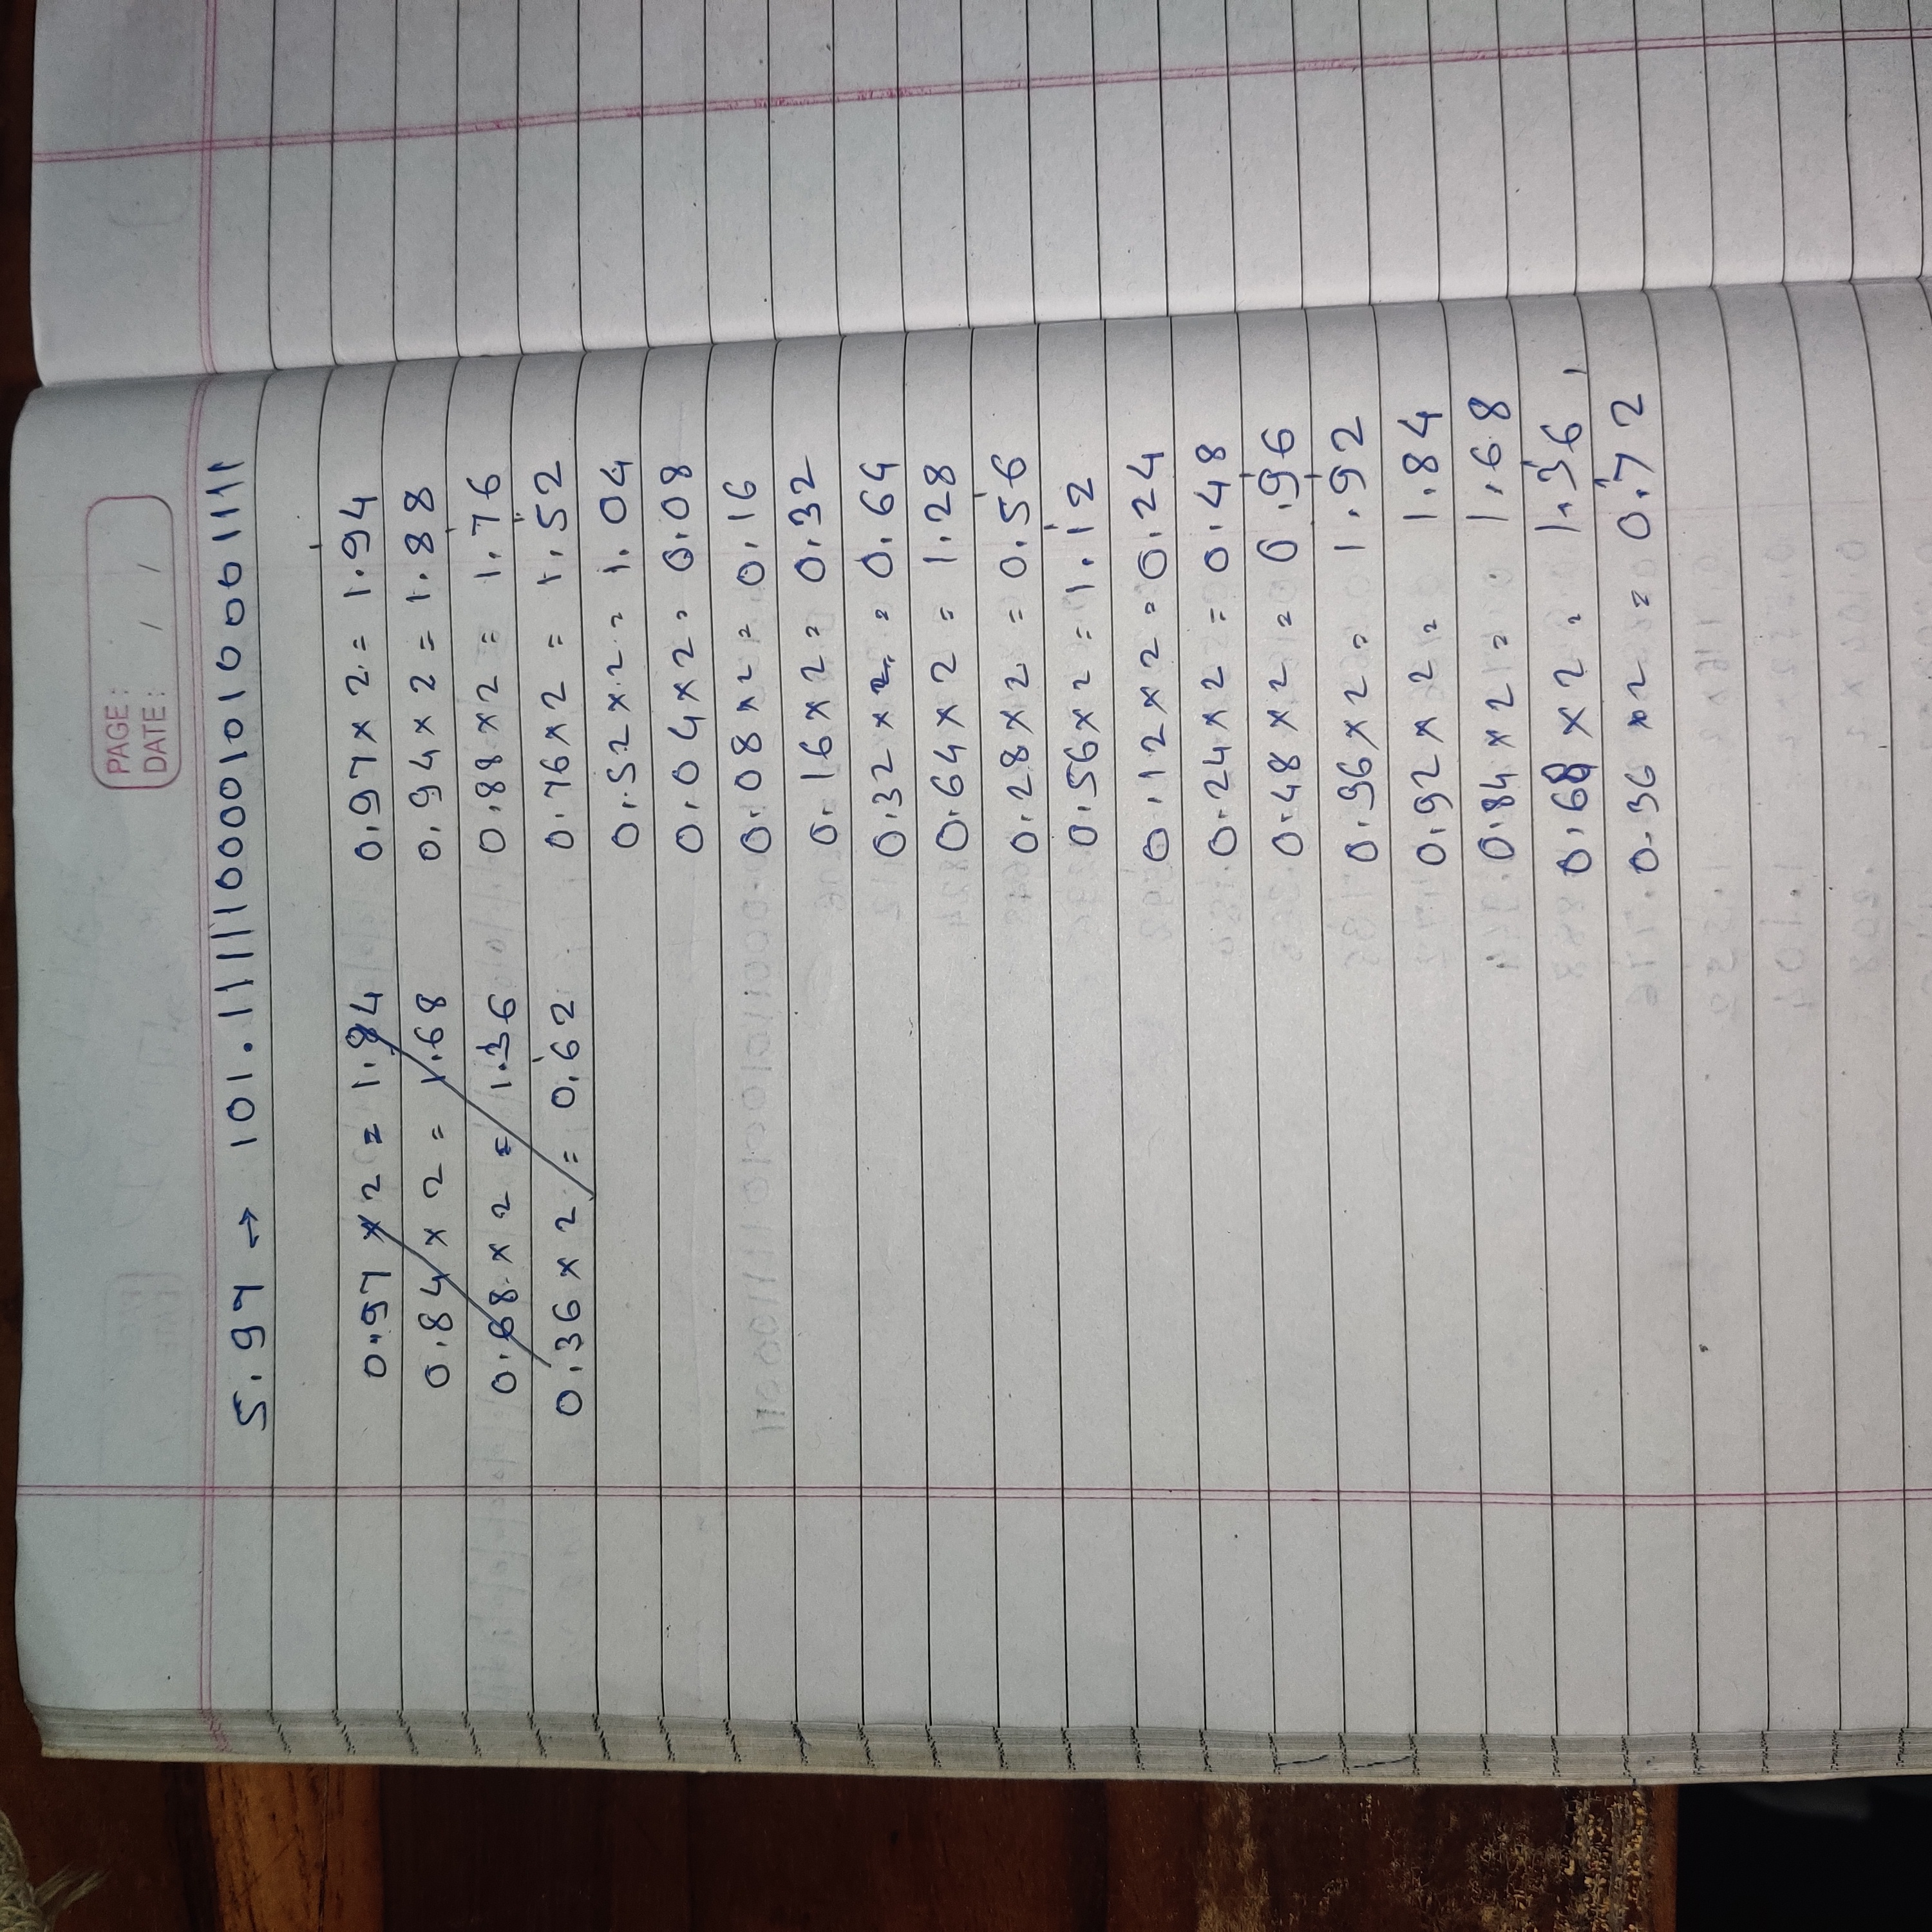 PAGE :
DATE : / /
5.97 → 101.11111000010100011111
0.97 × 2 = 1.94
0.84 × 2 = 1.68
0.68 × 2 = 1.36
0.36 × 2 = 0.62
0.97 × 2 = 1.94
0.94 × 2 = 1.88
0.88 × 2 = 1.76
0.76 × 2 = 1.52
0.52 × 2 = 1.04
0.04 × 2 = 0.08
0.08 × 2 = 0.16
0.16 × 2 = 0.32
0.32 × 2 = 0.64
0.64 × 2 = 1.28
0.28 × 2 = 0.56
0.56 × 2 = 1.12
0.12 × 2 = 0.24
0.24 × 2 = 0.48
0.48 × 2 = 0.96
0.96 × 2 = 1.92
0.92 × 2 = 1.84
0.84 × 2 = 1.68
0.68 × 2 = 1.36
0.36 × 2 = 0.72